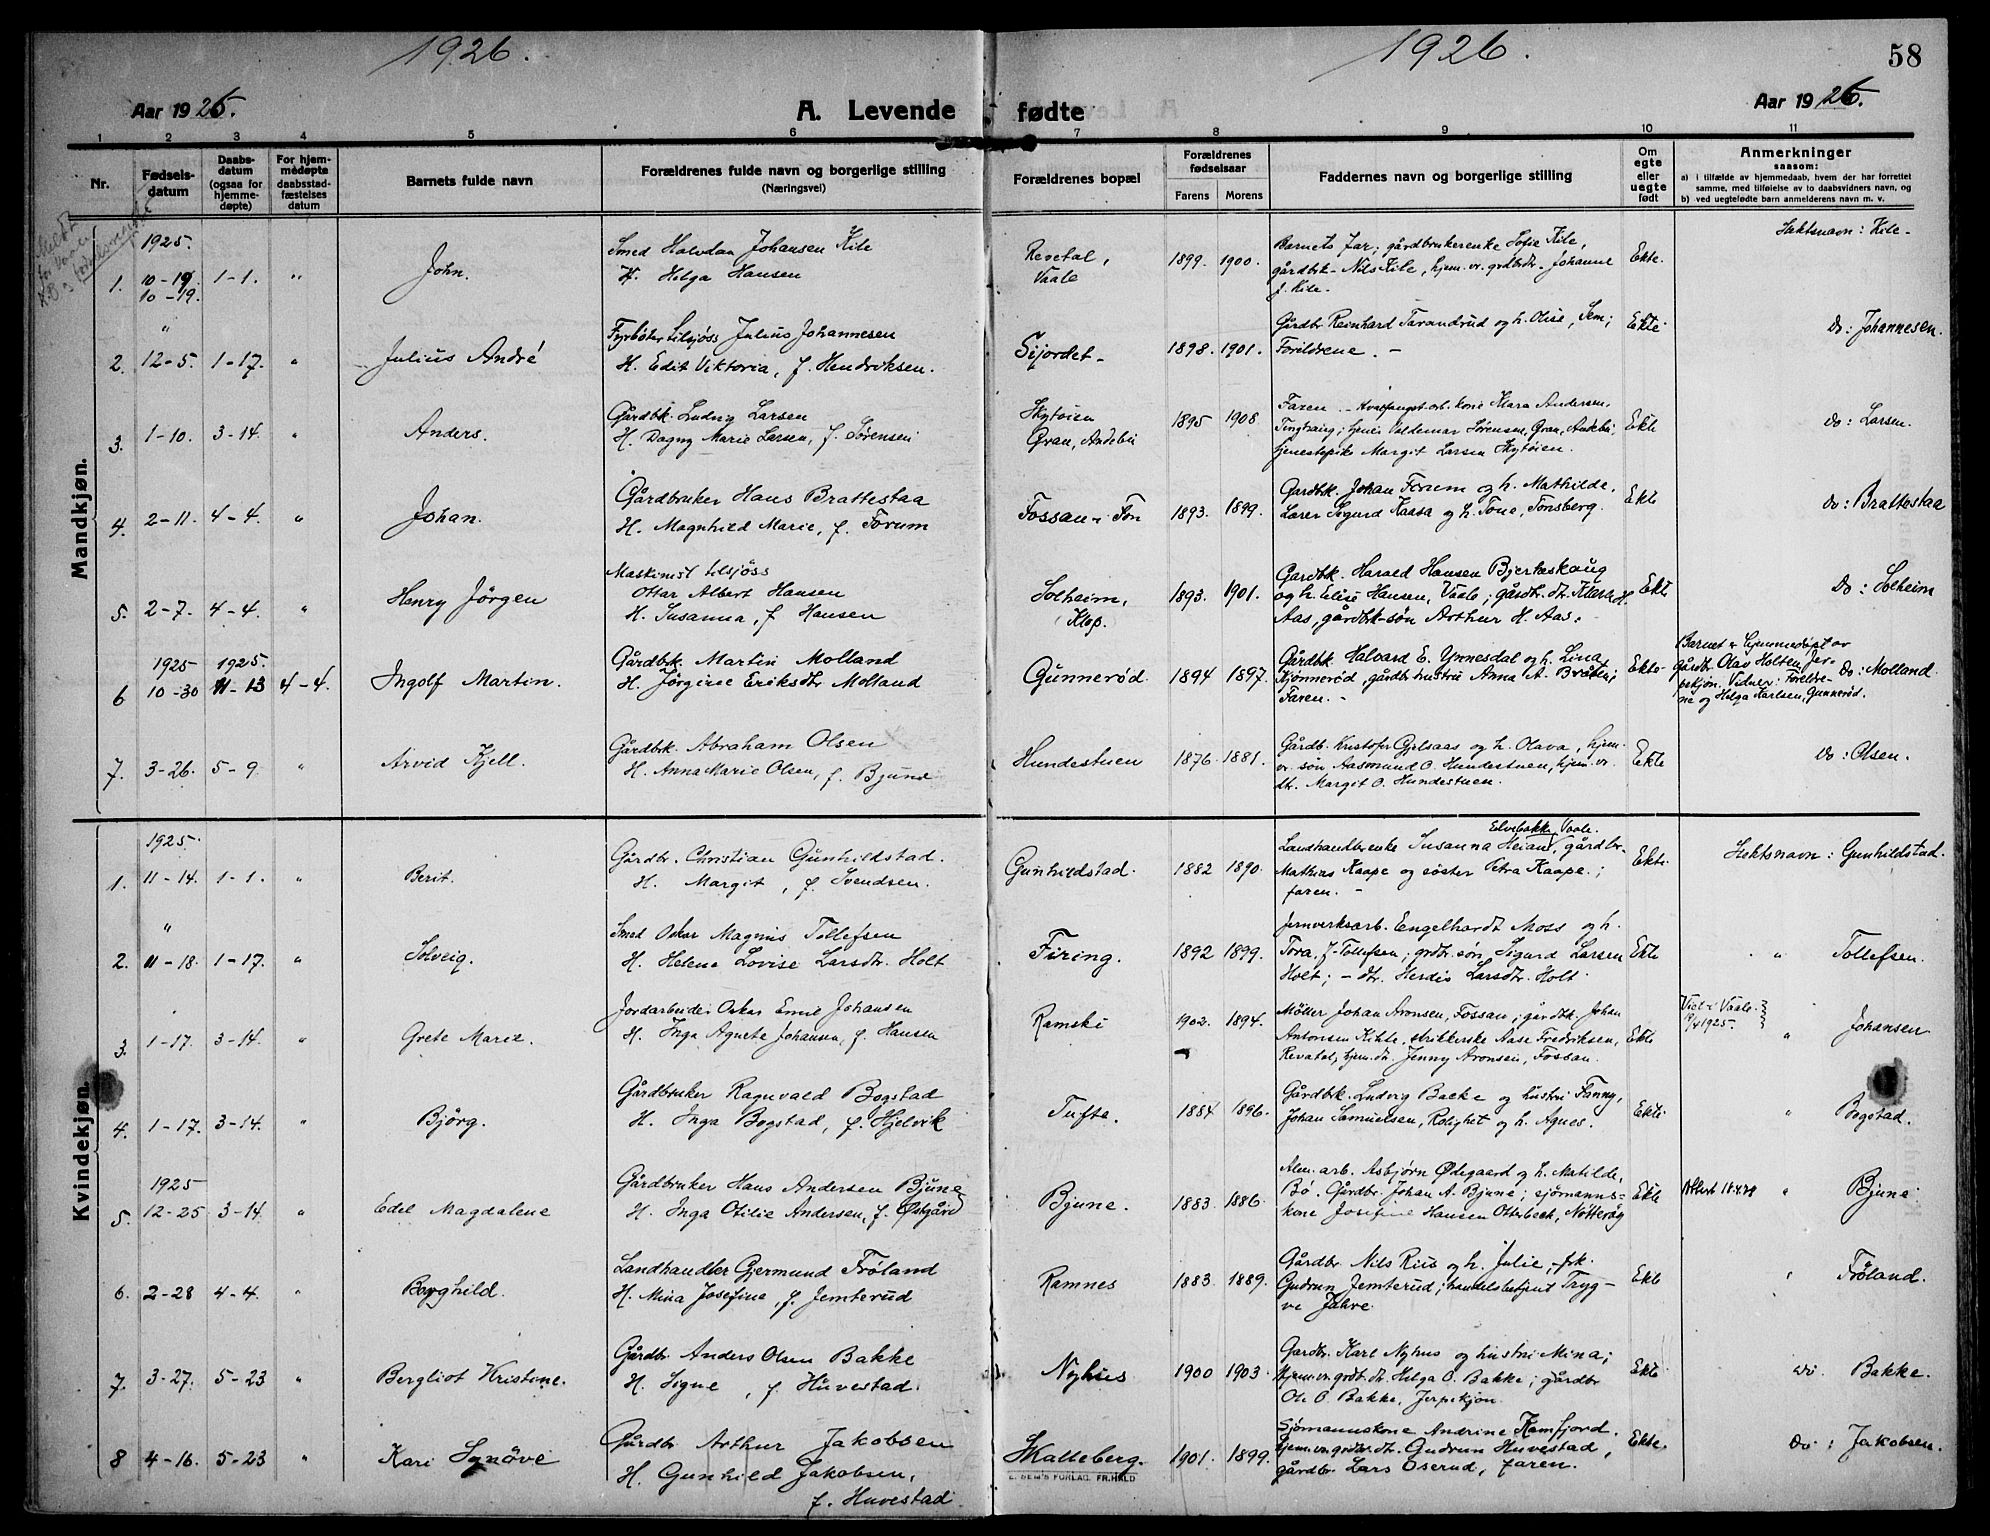 1926.
1926.
58
Aar 1926.
A. Levende
fødte
Aar 1926.
1 2 3 4 5 6 7 8 9 10 11
Nr.
Fødsels-
datum
Daabs-
datum
(ogsaa for
hjemme-
døpte)
For hjem-
medøpte
daabsstad-
fæstelses
datum
Barnets fulde navn
Forældrenes fulde navn og borgerlige stilling
(Næringsvei)
Forældrenes bopæl
Forældrenes
fødselsaar
Farens Morens
Faddernes navn og borgerlige stilling
Om
egte
eller
uegte
født
Anmerkninger
saasom:
a) i tilfælde av hjemmedaab, hvem der har forrettet
samme, med tilføielse av to daabsvidners navn, og
b) ved uegtefødte barn anmelderens navn m. v.
Mandkjøn.
1925.
1. 10-19. 1-1. " John.
10-19.
Smed Halvdan Johansen Kile
H. Helga Hansen
Revetal,
Vaale
1899. 1900.
Barnets Far; gårdbrukerenke Sofie Kile,
gårdbk- Nils Kile, hjem. vr. grdbrdtr. Johanne
f. Kile-
Ekte.
Slektsnavn: Kile-
"
2. 12-5. 1-17. " Julius André
Fyrbøter tilsjøss Julius Johannesen
H. Edit Viktoria, f. Hendriksen.
Sijordet-
1898. 1901.
Gårdbr. Reinhard Tarandrud og h. Olise, Sem;
Foreldrene. -
Ekte
Do: Johannesen.
3. 1-10. 3-14. " Anders.
Gårdbk. Ludvig Larsen
H. Dagny Marie Larsen, f. Sørensen
Skytøien
Gran, Andebu
1895 1908
Faren. - Hvalfangstarb. kone Klara Andersen,
Tinghaug; tjener Valdemar Sørensen, Gran, Andebu;
tjenestepike Margit Larsen Skytøien.
Ekte
do: Larsen.
4. 2-11. 4-4. " Johan.
Gårdbruker Hans Brattestaa
H. Magnhild Marie, f. Forum
Fossan i Fon
1893. 1899.
Gardbk. Johan Forum og h. Mathilde,
Lærer Sigurd Kaasa og h. Tone, Tønsberg.
Ekte
Do: Brattestaa
5. 2-7. 4-4. " Henry Jörgen
Maskinist tilsjöss
Ottar Albert Hansen
H. Susanna, f Hansen
Solheim,
Klop.
1893. 1901.
Gardbk. Harald Hansen Bjerkeskaug
og h. Elise Hansen, Vaale; gårdbr. dtr. Klara H.
Aas, gårdbk-søn Arthur H. Aas.
Ekte
Do: Solheim
1925 1925.
6 10-30 11-13 4-4. Ingolf Martin.
Gårdbk. Martin Molland
H. Jörgine Eriksdtr Molland
Gunnerød
1894 1897.
Gårdbk. Halvard E. Ynnesdal og h. Lina
Kjønnerød, gårdbr. hustru Anna A. Bråten;
Faren. -
Ekte
Barnet er hjemmedøpt av
gårdbr. Olav Holtens, Jer-
pekjøn. Vidner: Foreldre-
ne og Helga Karlsen, Gunnerød.
Do: Molland
7. 3-26. 5-9. " Arvid Kjell.
Gårdbk. Abraham Olsen
H. Anna Marie Olsen, f. Bjune
Hundestuen
1876. 1881.
Gårdb. Kristofer Gjelsaas og h. Olava, hjem.
vr. søn Aasmund O. Hundestuen, hjem. vr.
dtr. Margit O. Hundestuen.
Ekte
Do: Olsen.
Kvindekjøn.
1925.
1. 11-14. 1-1. " Berit.
Gårdbr. Christian Gunhildstad.
H. Margit, f. Svendsen.
Gunhildstad.
1882 1890.
Elvebakke, Vaale.
Landhandlerenke Susanna Heian, gårdbr.
Mathias Kaape og søster Petra Kaape.;
faren. -
Ekte
Slektsnavn: Gunhildstad.
"
2. 11-18. 1-17. " Solveig.
Smed Oskar Magnus Tollefsen
H. Helene Lovise Larsdtr. Holt
Firing.
1892 1899.
Jernverksarb. Engelhardt Moss og h.
Tora, f. Tollefsen; grdbr. søn Sigurd Larsen
Holt; - dtr. Herdis Larsdtr. Holt.
Ekte
" Tollefsen.
3. 1-17. 3-14. " Grete Marie.
Jordarbeider Oskar Emil Johansen
H. Inga Agnete Johansen, f. Hansen
Ramski
1902. 1894.
Möller Johan Aronsen, Fossan; gårdbk. Johan
Antonsen Kihle, strikkerske Aase Fredriksen,
Revatal, hjem. dtr. Jenny Aronsen, Fossan.
Ekte
Viet i Vaale.
1925.
" Johansen
4. 1-17. 3-14. " Bjørg.
Gårdbruker Ragnvald Bogstad
H. Inga Bogstad, f. Hjelvik
Tufte.
1884 1896.
Gårdbk. Ludvig Bakke og hustru Fanny,
Johan Samuelsen, Rolighet og h. Agnes.
Ekte
" Bogstad.
1925
5. 12-25 3-14. " Edel Magdalene
Gårdbruker Hans Andersen Bjune
H. Inga Otilie Andersen, f. Østgård
Bjune.
1883. 1886.
Alm. arb. Asbjørn Ødegaard og h. Matilde,
Bø. Gårdbr. Johan A. Bjune; sjömanns-
kone Josefine Hansen Otterbeck, Nötteröy
Ekte
Attest 18.4.39
" Bjune.
6. 2-28 4-4. " Borghild.
Landhandler Gjermund Frøland
H. Mina Josefine, f. Jemterud
Ramnes
1883. 1889.
Gårdbr. Nils Riis og h. Julie, frk.
Gudrun Jemterud; handelsbetjent Tryg-
ve Jahre.
Ekte
" Frøland.
7. 3-27. 5-23 " Bergliot Kristine.
Gårdbr. Anders Olsen Bakke
H. Signe, f. Huvestad.
Nyhus
1900 1903.
Gardbr. Karl Nyhus og hustru Mina;
Hjem. vr. grdbr. dtr. Helga O. Bakke; gårdbr.
Ole O. Bakke, Jerpekjøn.
Ekte
Do. Bakke.
8 4-16. 5-23. " Kari Synöve
Gårdbr. Arthur Jakobsen
H. Gunhild Jakobsen,
f. Huvestad
Skalleberg.
1901. 1899.
Sjømannskone Andrine Kamfjord.
Hjem. vr. grdbr. dtr. Gudrun Huvestad,
gårdbr. Lars Oserud, faren.
Ekte.
Do: Jakobsen.
E. SEM'S FORLAG. FR.HALD